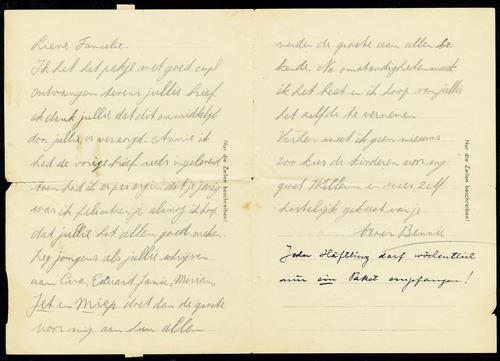 Lieve Familie.
Ik heb het pakje met goed
ontvangen tevens jullie brief
ik dank jullie dat dit onmiddelijk
door jullie is verzorgd. Annie ik
had de vorige brief reeds
toen had ik er pas erg in dat je jarig
was ik feliciteer je alsnog ik hoop
dat jullie het allen goed maken
hey jongens als jullie schrijven
aan Eva, Eduard, Janie, Miriam,
Jet en Miep doet dan de groete
voor mij aan hun allen
verder de groete aan allen be-
kende. Na omstandigheden maak
ik het best en ik hoop van jullie
het zelfde te vernemen
Verder weet ik geen nieuws
zoo kus de kinderen voor mij
groet Willem en weer zelf
hartelijk gekust van je
Broer Bennie
Jeder Häftling darf wöchentlich
nur ein Paket empfangen!
Nur die Zeilen beschreiben!
Nur die Zeilen beschreiben!